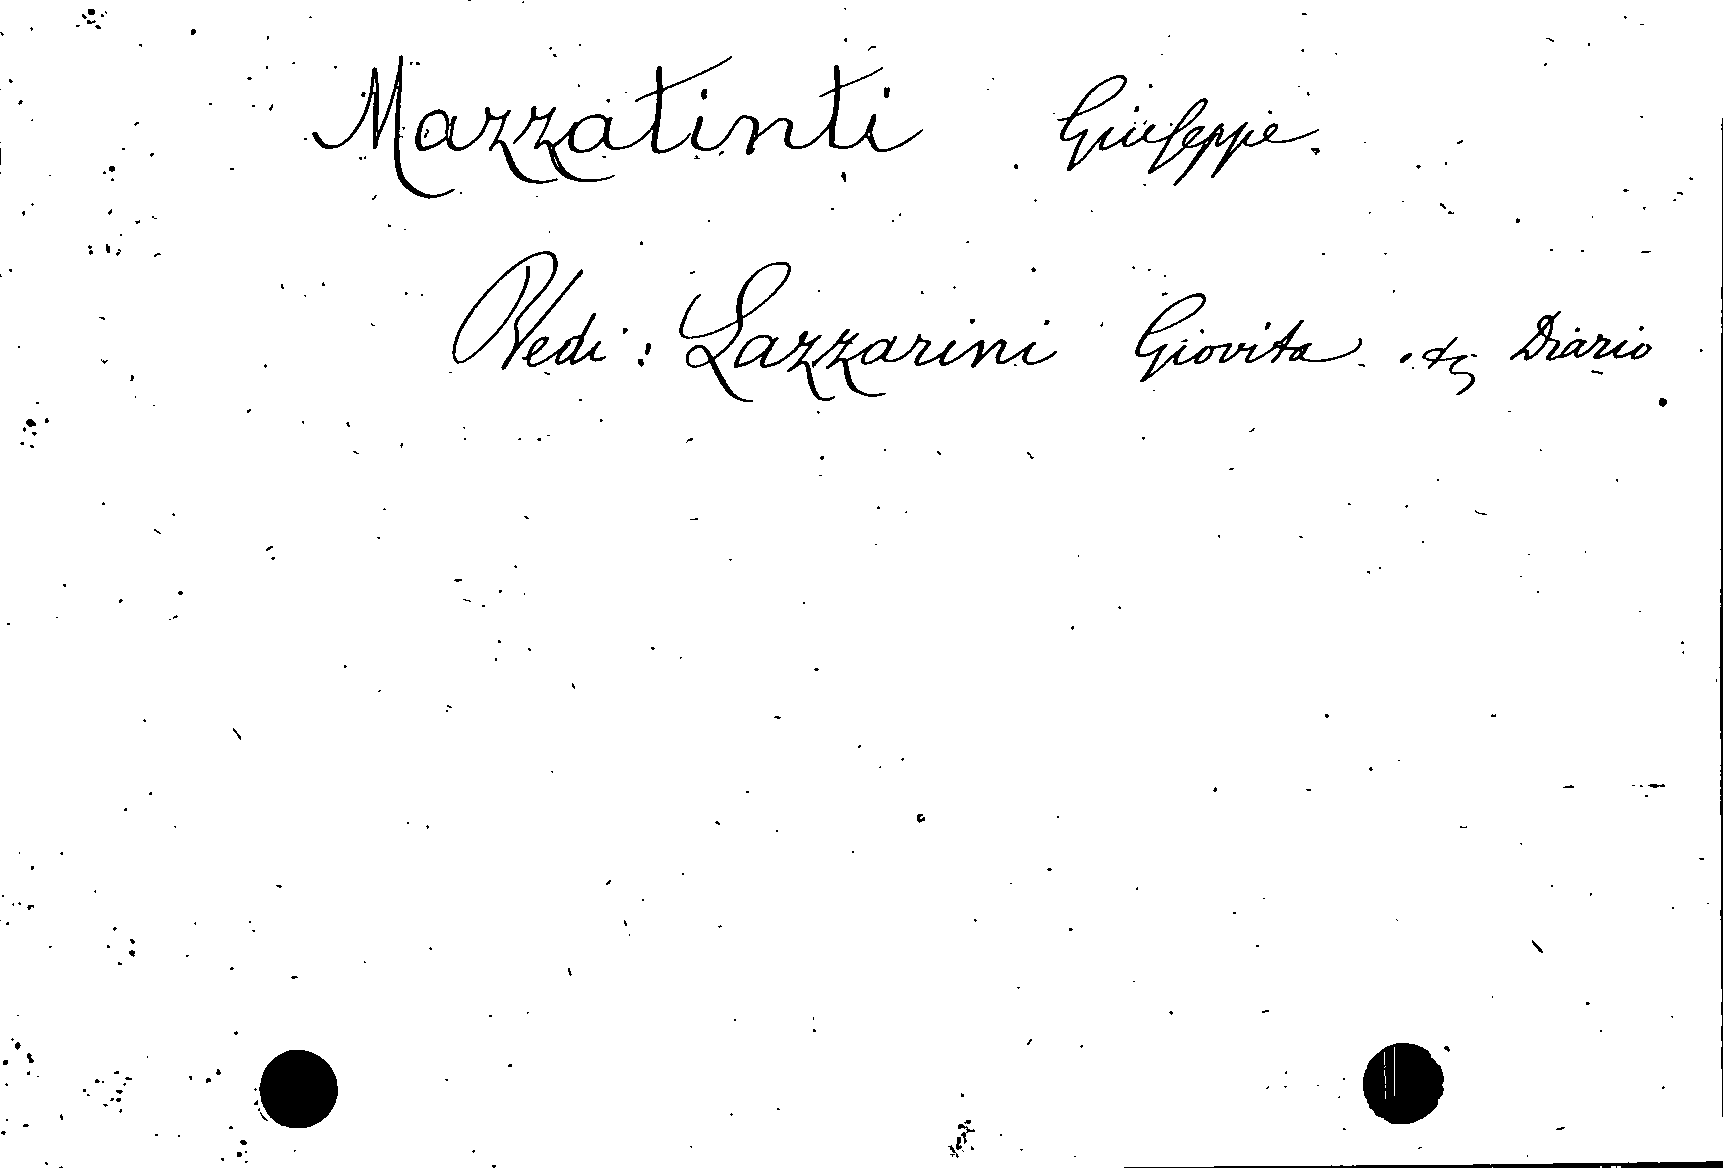 Mazzatinti Giuseppe.
Vedi: Lazzarini Giovita. Diario